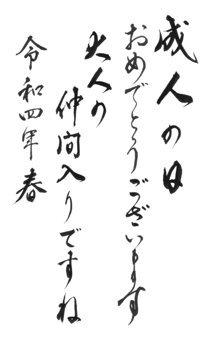 成人の日
おめでとうございます
大人の
仲間入りですね
令和四年 春